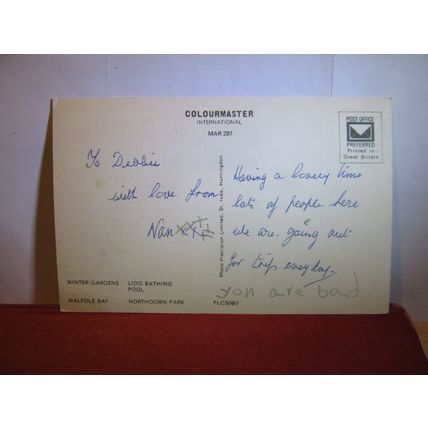 COLOURMASTER
INTERNATIONAL
MAR 297
POST OFFICE
PREFERRED
Printed in
Great Britain
To Debbie
with love from
Nan xxx
Photo Precision Limited, St. Ives, Huntingdon
Having a lovery time
lots of people here
we are going out
for trips everyday.
you are bad
WINTER GARDENS LIDO BATHING POOL
WALPOLE BAY NORTHDOWN PARK
PLC5080